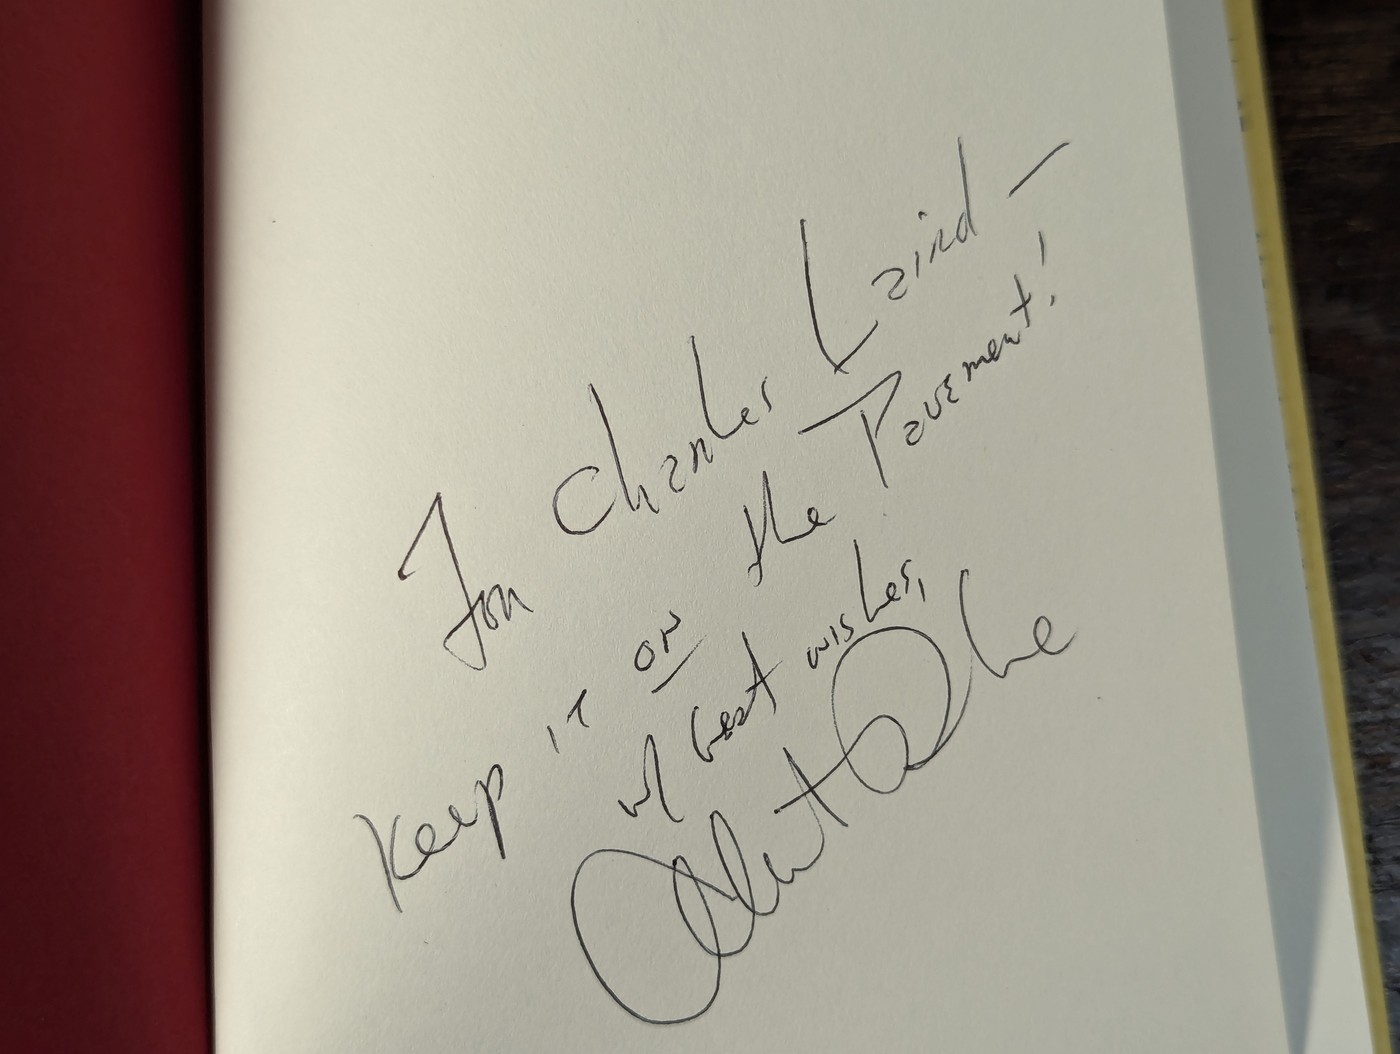 For Charles Laird —
Keep it on the Pavement!
w/ best wishes,